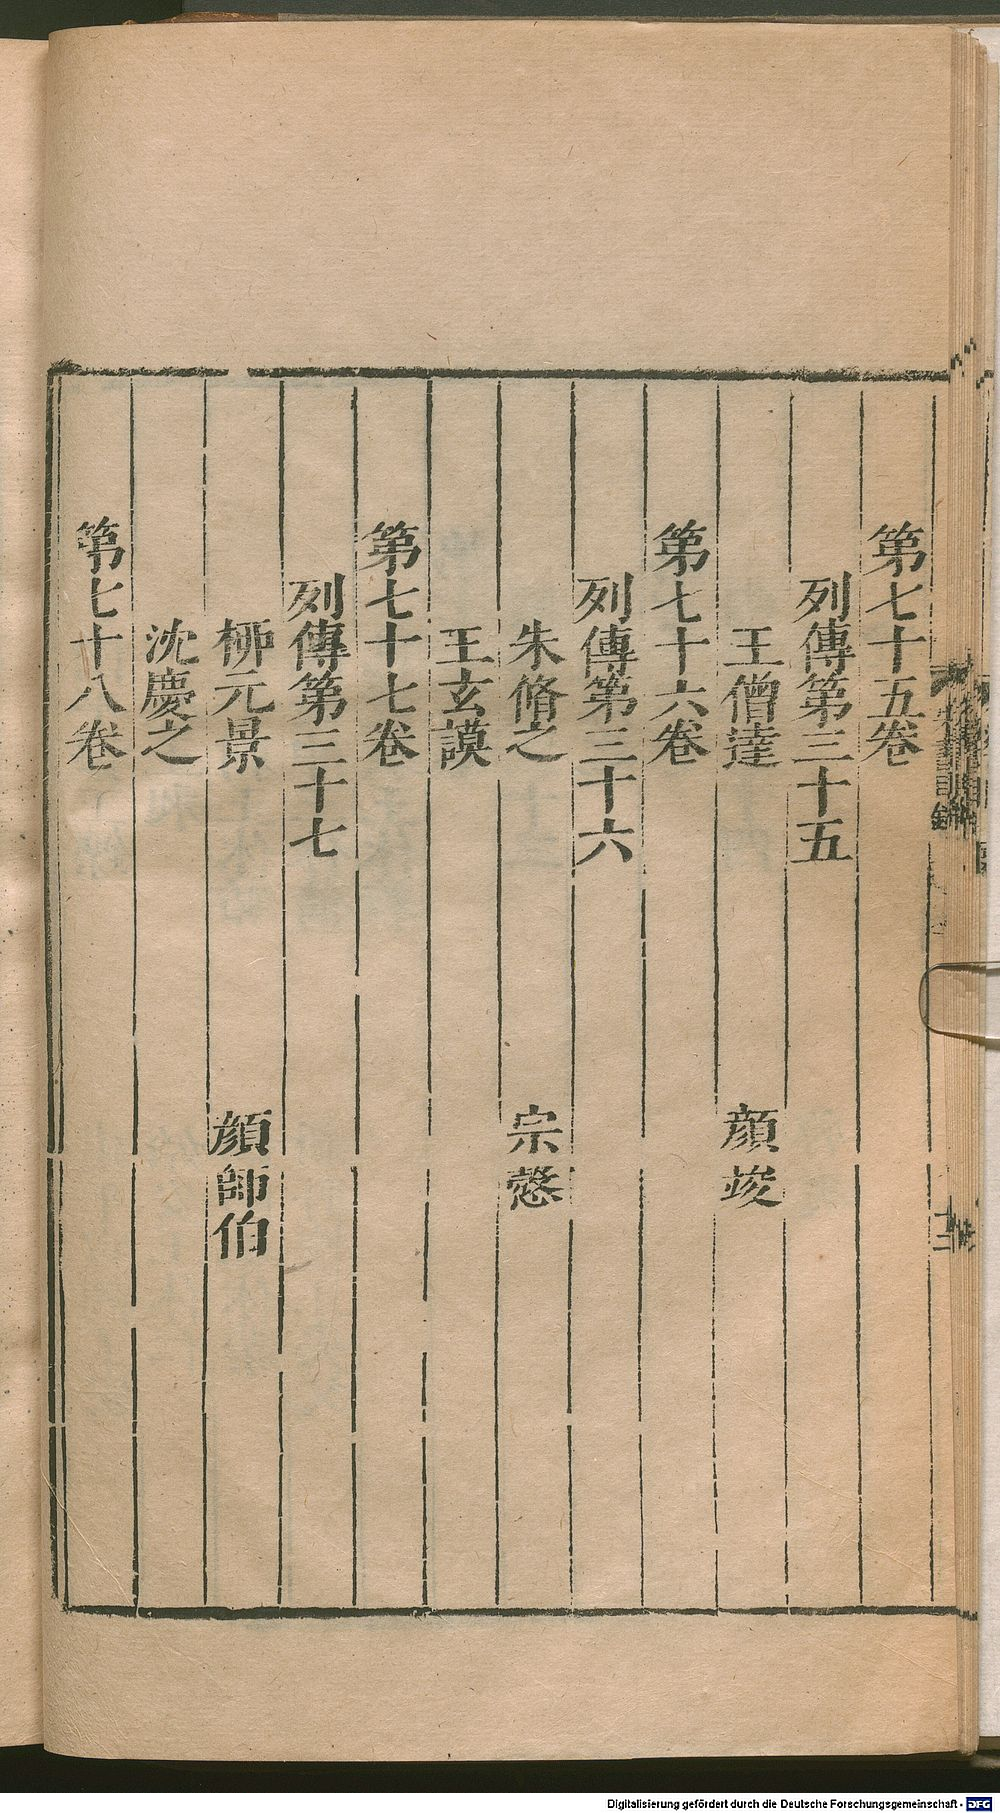 第七十五卷
列傳第三十五
王僧達 顔竣
第七十六卷
列傳第三十六
朱脩之 宗慤
王玄謨
第七十七卷
列傳第三十七
柳元景 顔師伯
沈慶之
第七十八卷
Digitalisierung gefördert durch die Deutsche Forschungsgemeinschaft - DFG